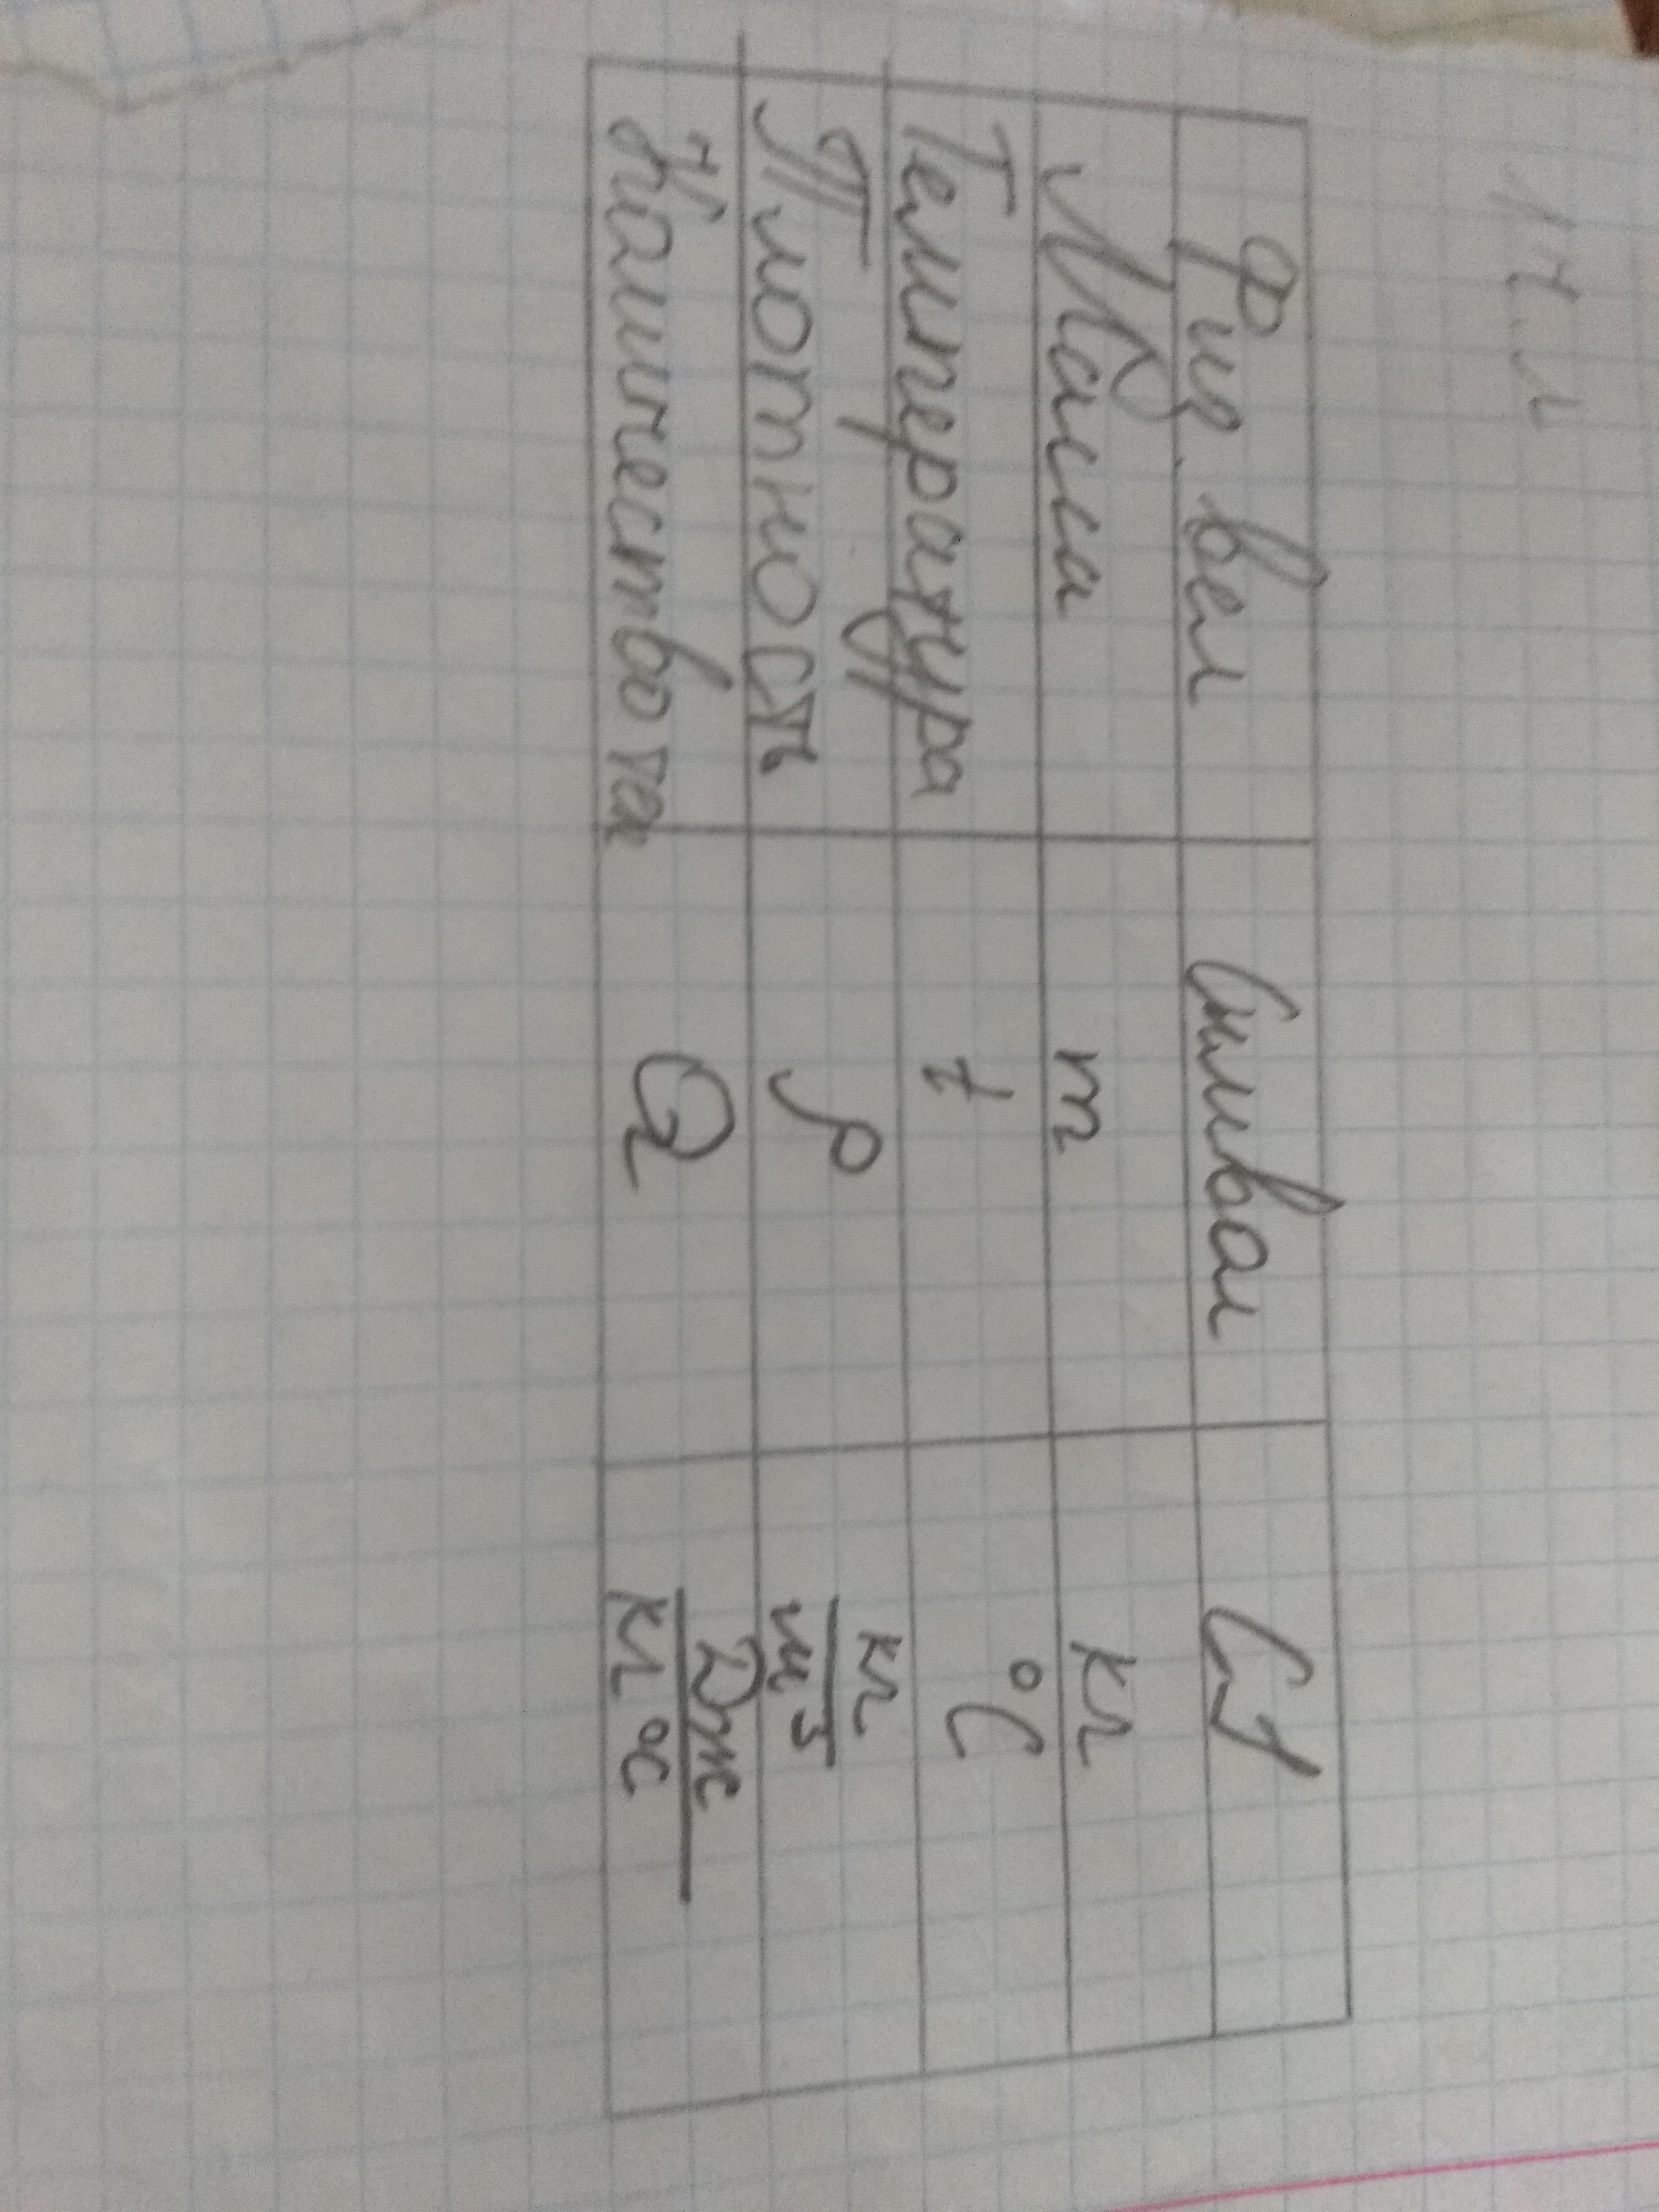 Физ. вел Символ СИ
Масса m кг
Температура t °C
Плотность ρ кг/м³
Количество теп Q Дж/кг °C